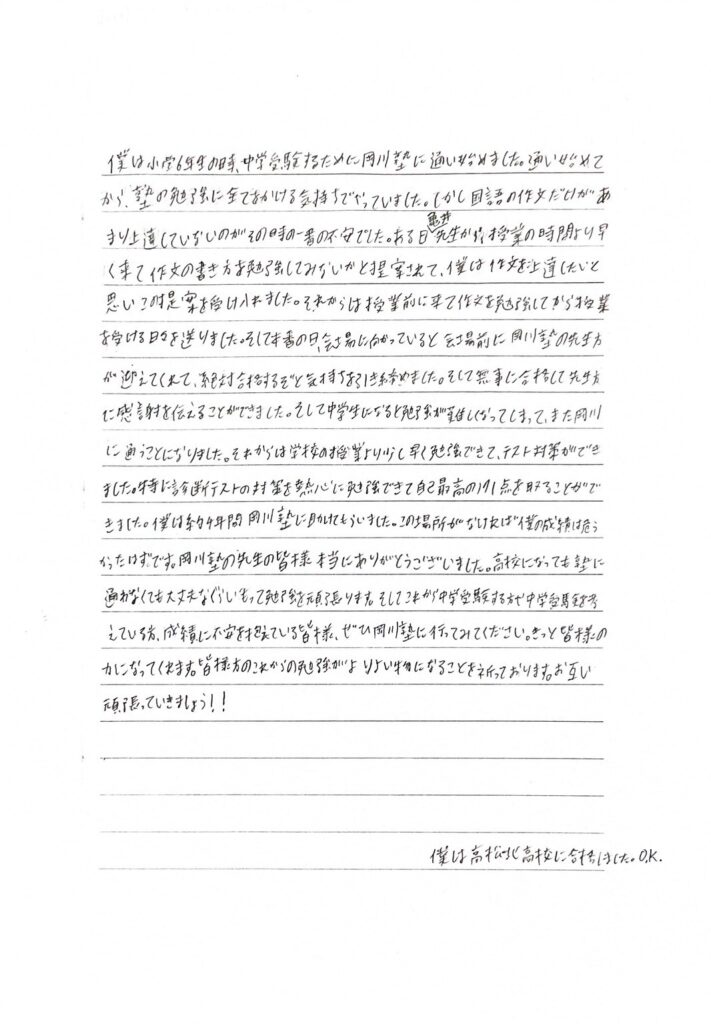 僕は小学6年生の時、中学受験するために岡川塾に通い始めました。通い始めて
から、塾の勉強に全てをかける気持ちでやっていました。しかし国語の作文だけがあ
まり上達していないのがその時の一番の不安でした。ある日亀井先生から、授業の時間より早
く来て作文の書き方を勉強してみないかと提案されて、僕は作文を上達したいと
思いこの提案を受け入れました。それからは授業前に来て作文を勉強してから授業
を受ける日々を送りました。そして本番の日、会場に向かっていると会場前に岡川塾の先生方
が迎えてくれて、絶対合格するぞと気持ちを引き締めました。そして無事に合格して先生方
に感謝を伝えることができました。そして中学生になると勉強が難しくなってしまって、また岡川
に通うことになりました。それからは学校の授業より少し早く勉強できて、テスト対策ができ
ました。特に診断テストの対策を熱心に勉強できて自己最高の171点を取ることがで
きました。僕は約4年間岡川塾に助けてもらいました。この場所がなければ僕の成績は危う
かったはずです。岡川塾の先生の皆様本当にありがとうございました。高校になっても塾に
通わなくても大丈夫なぐらいもって勉強を頑張ります。そしてこれから中学受験する方や中学受験を考
えている方、成績に不安を抱えている皆様、ぜひ岡川塾に行ってみてください。きっと皆様の
力になってくれます。皆様方のこれからの勉強がよりよい物になることを祈っております。お互い
頑張っていきましょう!!
僕は高松北高校に合格しました。O.K.